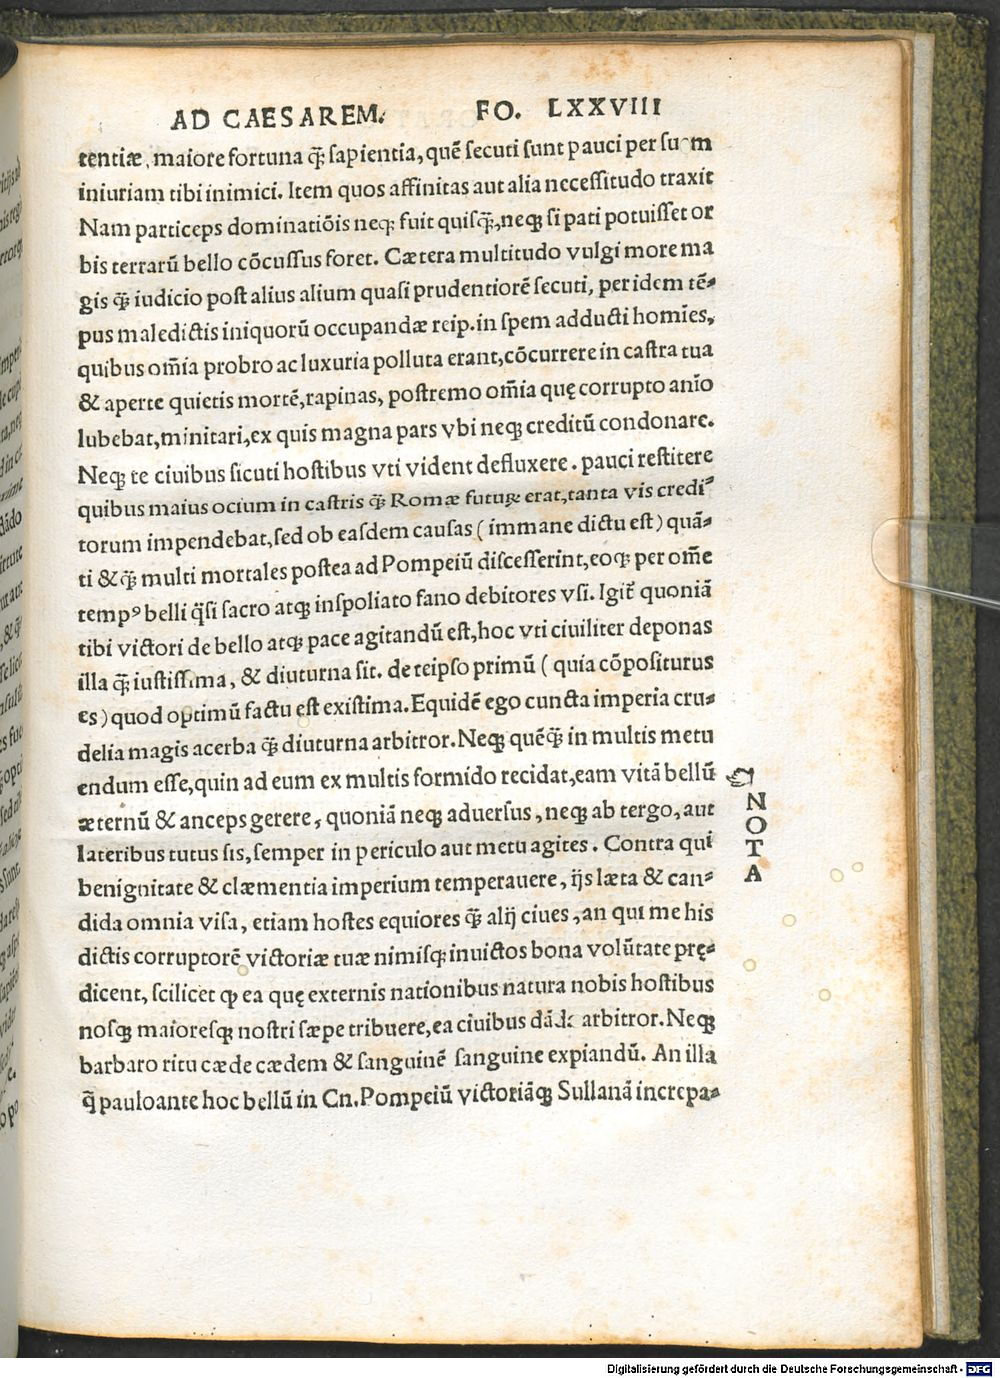 AD CAESAREM. FO. LXXVIII
tentiæ, maiore fortuna q̃ sapientia, quẽ secuti sunt pauci per suam
iniuriam tibi inimici. Item quos affinitas aut alia necessitudo traxit
Nam particeps dominatiõis neqꝫ fuit quisq̃, neqꝫ si pati potuisset or
bis terrarũ bello cõcussus foret. Cætera multitudo vulgi more ma
gis q̃ iudicio post alius alium quasi prudentiorẽ secuti, per idem tẽ-
pus maledictis iniquorũ occupandæ reip. in spem adducti homĩes,
quibus om̃ia probro ac luxuria polluta erant, cõcurrere in castra tua
& aperte quietis mortẽ, rapinas, postremo om̃ia quę corrupto anĩo
lubebat, minitari, ex quis magna pars vbi neqꝫ creditũ condonare.
Neqꝫ te ciuibus sicuti hostibus vti vident defluxere. pauci restitere
quibus maius ocium in castris q̃ Romæ futuꝝ erat, tanta vis credi-
torum impendebat, sed ob easdem causas (immane dictu est) quã-
ti & q̃ multi mortales postea ad Pompeiũ discesserint, eoqꝫ per om̃e
tempꝰ belli q̃si sacro atqꝫ inspoliato fano debitores vsi. Igit̃ quoniã
tibi victori de bello atqꝫ pace agitandũ est, hoc vti ciuiliter deponas
illa q̃ iustissima, & diuturna sit. de teipso primũ (quia cõpositurus
es) quod optimũ factu est existima. Equidẽ ego cuncta imperia cru-
delia magis acerba q̃ diuturna arbitror. Neqꝫ quẽq̃ in multis metu
endum esse, quin ad eum ex multis formido recidat, eam vitã bellũ
æternũ & anceps gerere, quoniã neqꝫ aduersus, neqꝫ ab tergo, aut
lateribus tutus sis, semper in periculo aut metu agites. Contra qui
benignitate & clæmentia imperium temperauere, ijs læta & can-
dida omnia visa, etiam hostes equiores q̃ alij ciues, an qui me his
dictis corruptorẽ victoriæ tuæ nimisqꝫ inuictos bona volũtate prę-
dicent, scilicet ꝙ ea quę externis nationibus natura nobis hostibus
nosqꝫ maioresqꝫ nostri sæpe tribuere, ea ciuibus dãda arbitror. Neqꝫ
barbaro ritu cæde cædem & sanguinẽ sanguine expiandũ. An illa
q̃ pauloante hoc bellũ in Cn. Pompeiũ victoriãqꝫ Sullanã increpa-
NOTA
Digitalisierung gefördert durch die Deutsche Forschungsgemeinschaft - DFG